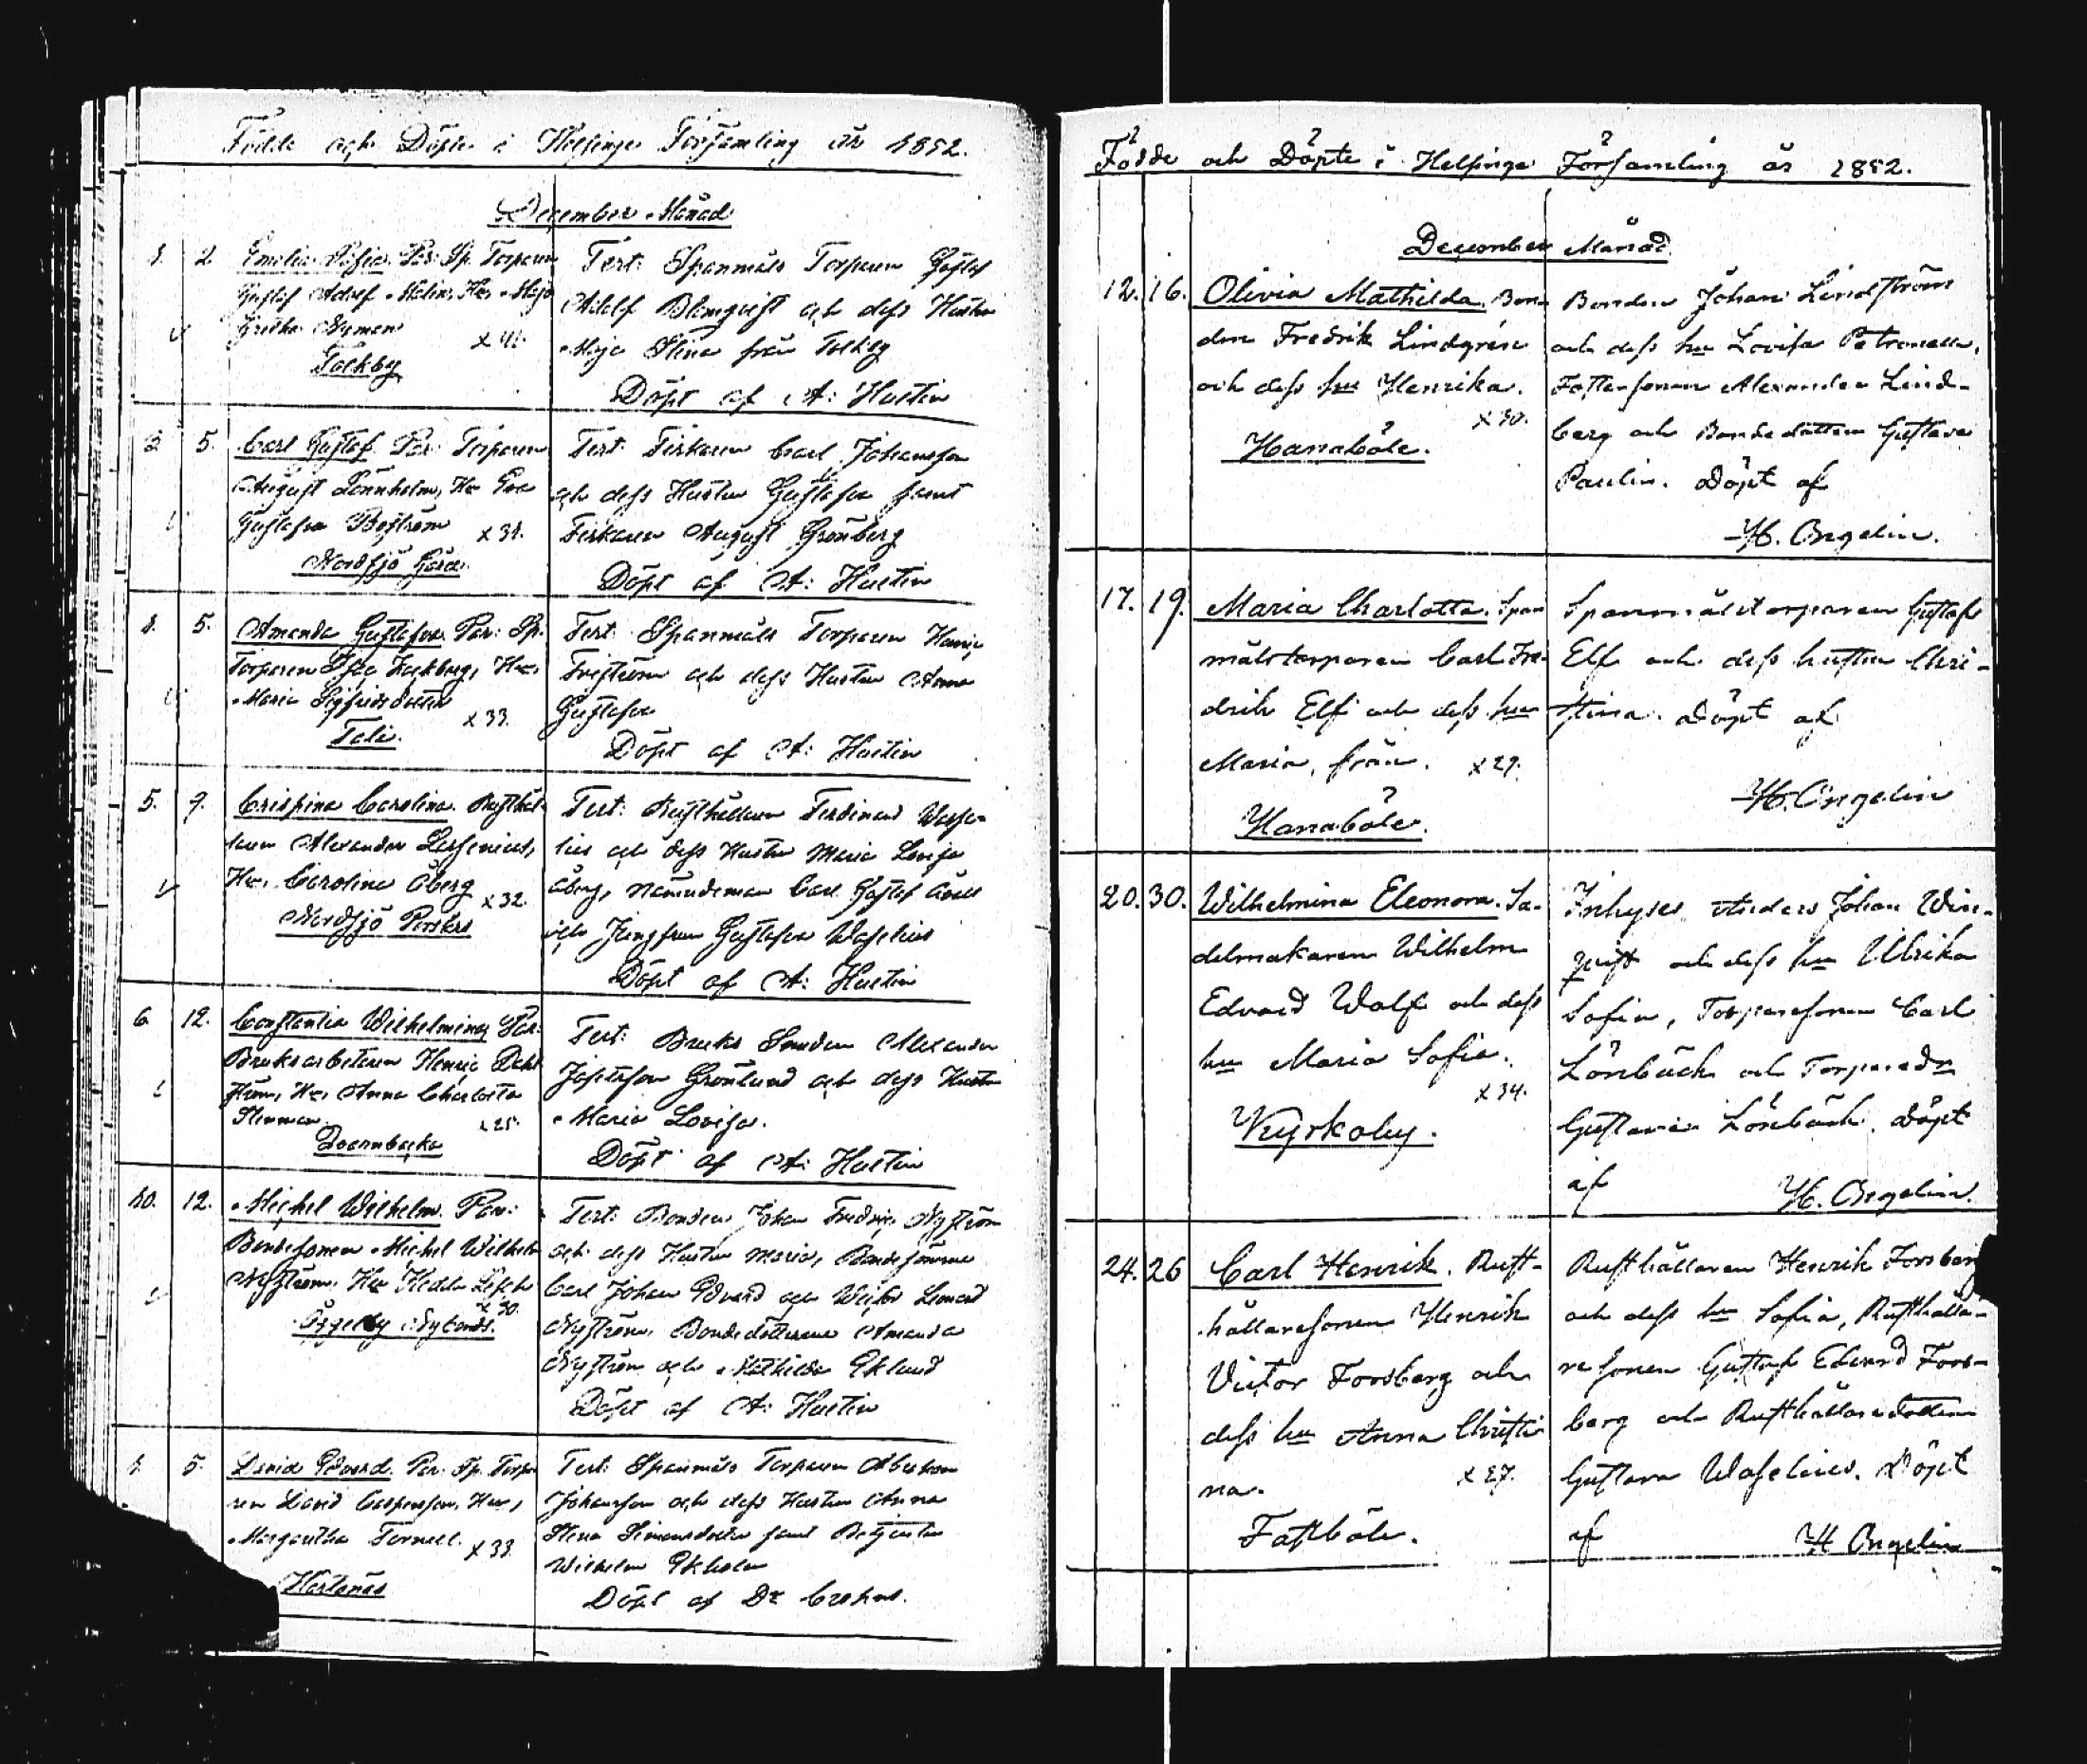 Födde och Döpte i Helsinge Församling år 1852.
December Månad
1. 2. Emelie Sofia. Par: Sp. Torparen
Gustaf Adolf Malin, Hu, Maja
Gretha Nyman x 41.
Tolkby
Test: Spanmåls Torparen Gustaf
Adolf Blomqvist och dess Hustru
Maja Stina från Tolkby
Döpt af A: Hustin
5. Carl Gustaf. Par: Torparen
August Lönnholm, Hu Eva
Gustafva Boström x 31.
Nordsjö Gård.
Test: Fiskaren Carl Johansson
och dess Hustru Gustafva samt
Fiskaren August Grönberg
Döpt af A: Hustin
1. 5. Amanda Gustafva. Par: Sp.
Torparen Hu,
Maria Sigfridsdotter x 33.
Tali.
Test: Spanmåls Torparen Henric
och dess Hustru Anna
Gustafva
Döpt af A: Hustin
5. 9. Crispina Carolina. Rusthål-
laren Alexander
Hu, Carolina Öberg x 32.
Nordsjö
Test: Rusthållaren Ferdinand Wase-
lius och dess Hustru Maria Lovisa
Öberg, Nämndeman Carl Gustaf
och Jungfrun Gustafva Waselius
Döpt af A: Hustin
6 12. Constantia Wilhelmina, Par:
Bruksarbetaren Henric Dahl-
ström, Hu, Anna Charlotta
Stenman. x 25.
Dvernbacka
Test: Bruks Smeden Alexander
Josefsson Grönlund och dess Hustru
Maria Lovisa.
Döpt af A: Hustin
10. 12. Michel Wilhelm. Par:
Bondesonen Michel Wilhelm
Nyström, Hu Hedda
x 30.
Åggelby Nybonds.
Test: Bonden Johan Fredric Nyström
och dess Hustru Maria, Bondesönerne
Carl Johan Edvard och Victor Leonard
Nyström, Bondedöttrarne Amanda
Nyström och Mathilda Eklund
Döpt af A: Hustin
1. 5. David Edvard. Par: Sp. Torpa-
ren David Casperson, Hu,
Margaretha Tornell. x 33.
Hertonäs
Test: Spanmåls Torparen Abraham
Johansson och dess Hustru Anna
Stena Simonsdotter samt Betjenten
Wilhelm Ekholm
Döpt af Dr Crohns.
Födde och Döpte i Helsinge Församling år 1852.
December Månad
12. 16. Olivia Mathilda. Bon-
den Fredrik Lindgrén
och dess hu Henrika.
x 30.
Hanaböle.
Bonden Johan Lindström
och dess hu Lovisa Petronella,
Fostersonen Alexander Lind-
berg och Bondedottern Gustava
Paulin. Döpt af
H. Bngelin.
17. 19. Maria Charlotta. Span-
målstorparen Carl Fre-
drik Elf och dess hu
Maria, från. x 27.
Hanaböle.
Spannmålstorparen Gustaf
Elf och dess hustru Chri-
stina. Döpt af
H. Bngelin
20. 30. Wilhelmina Eleonora. Sa-
delmakaren Wilhelm
Edvard Wolf och dess
hu Maria Sofia.
x 34.
Kyrkoby.
Inhyses Anders Johan Win-
qvist och dess hu Ulrika
Sofia, Torparesonen Carl
Lönbäck och Torparedr
Gustava Lönbäck. Döpt
af H. Bngelin.
24. 26 Carl Henrik. Rust-
hållaresonen Henrik
Victor Forsberg och
dess hu Anna Christi-
na. x 27.
Fastböle.
Rusthållaren Henrik Forsberg
och dess hu Sofia, Rusthålla-
resonen Gustaf Edvard Fors-
berg och Rusthållaredottern
Gustava Waselius. Döpt
af H Bngelin